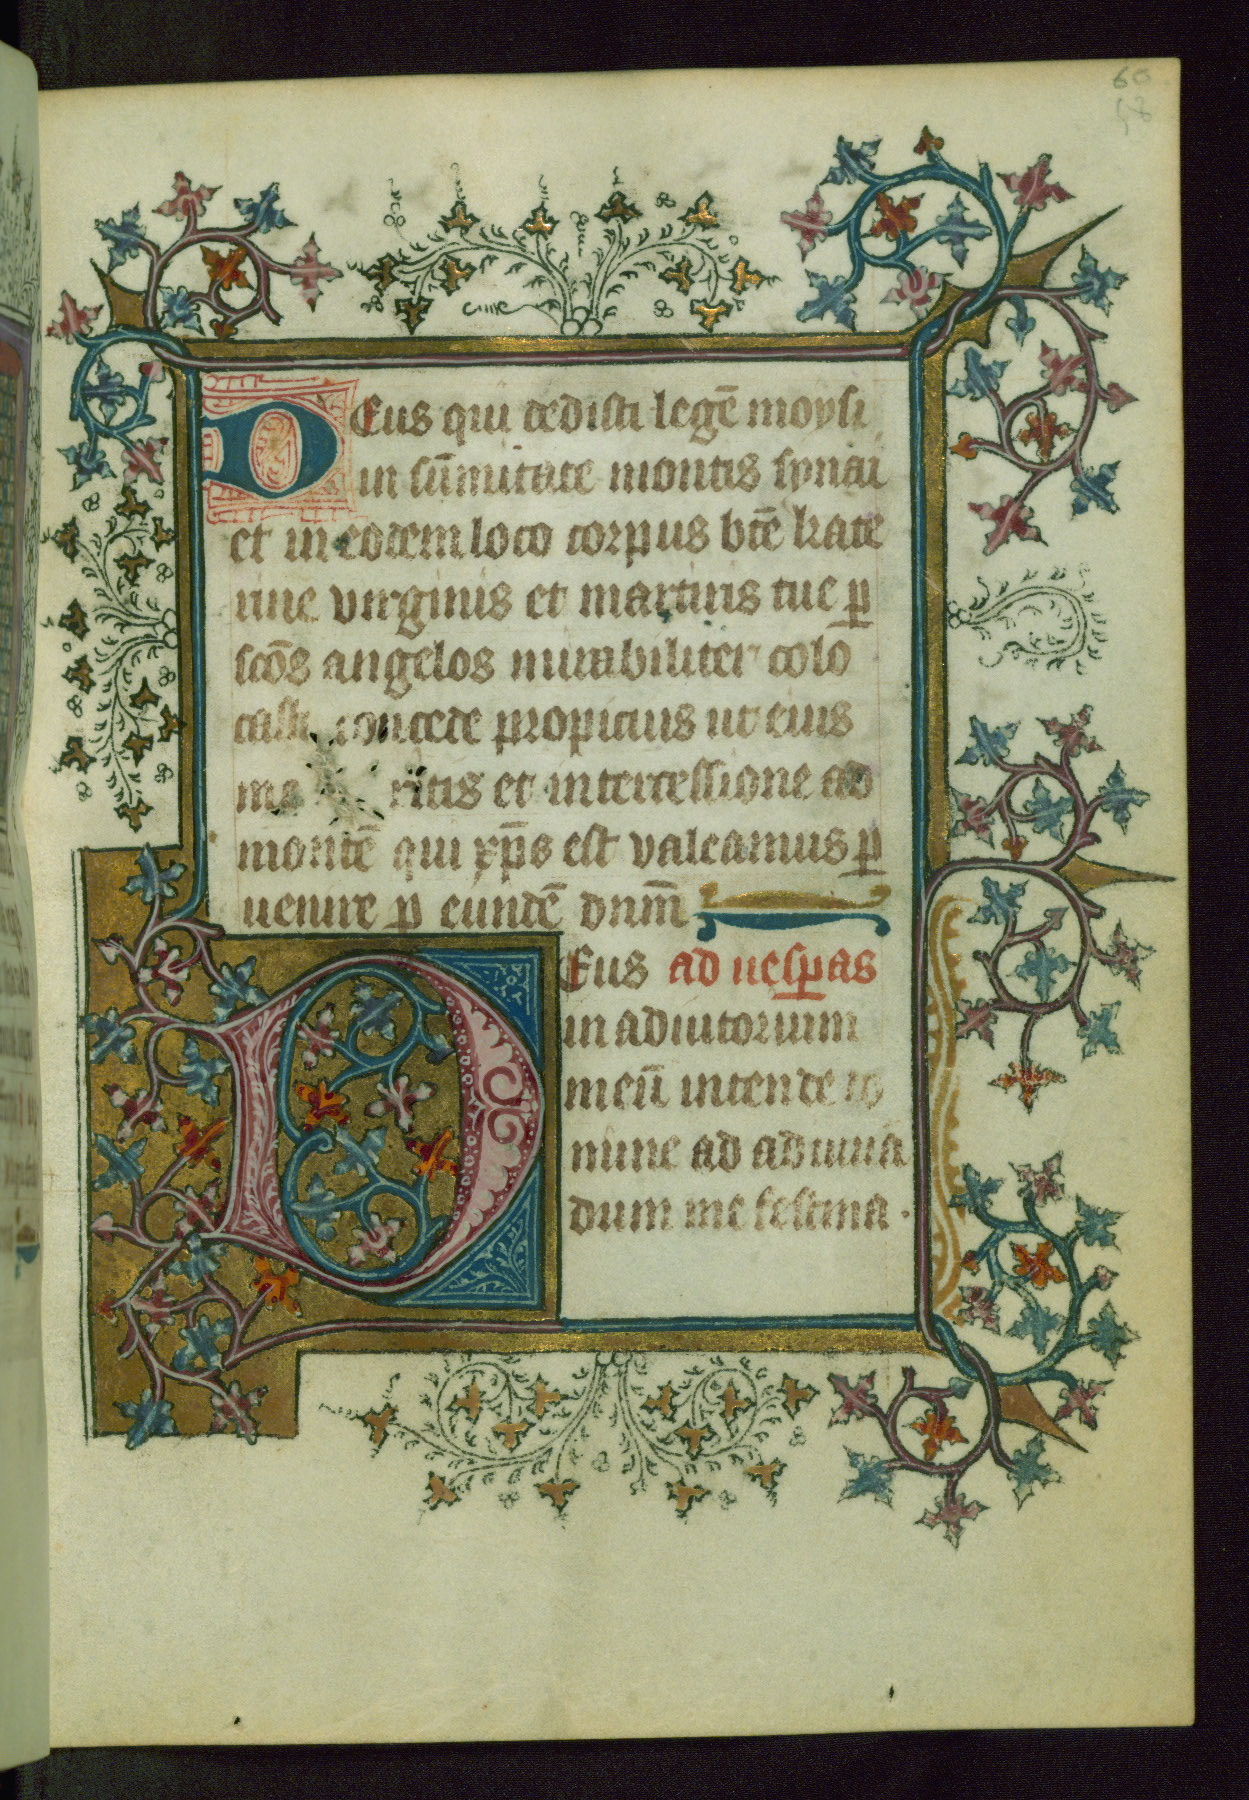 60
58
Deus qui dedisti legē moysi
in sūmitate montis synai
et in eodem loco corpus btē kate
rine virginis et martiris tue p̱
scōs angelos mirabiliter colo
casti concede propicius ut eius
me ritis et intercessione ad
montē qui xp̄s est valeamus p̱
uenire p̱ eundē dnm̄
Deus ad uesp̱as
in adiutorium
meū intende do
mine ad adiuua
dum me festina.